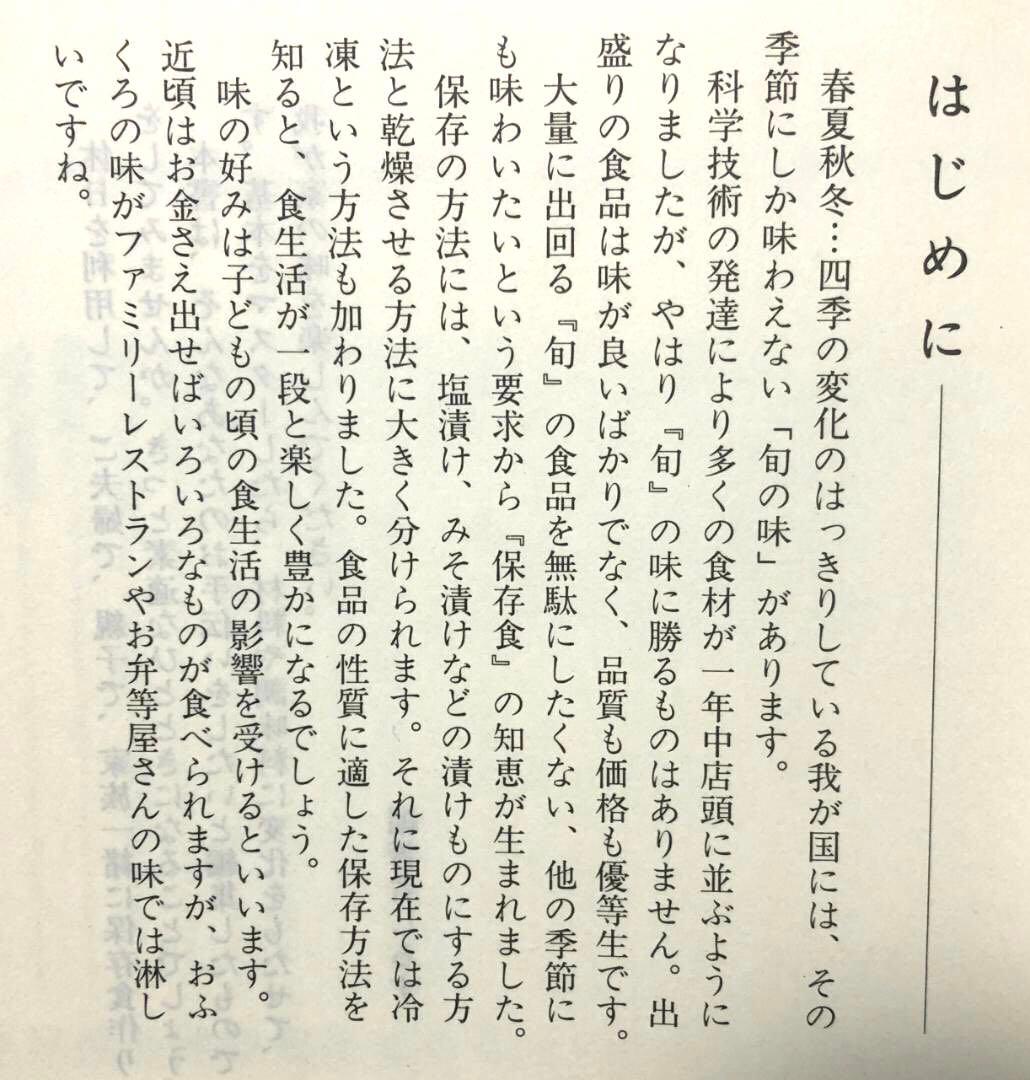 はじめに
春夏秋冬…四季の変化のはっきりしている我が国には、その
季節にしか味わえない「旬の味」があります。
科学技術の発達により多くの食材が一年中店頭に並ぶように
なりましたが、やはり『旬』の味に勝るものはありません。出
盛りの食品は味が良いばかりでなく、品質も価格も優等生です。
大量に出回る『旬』の食品を無駄にしたくない、他の季節に
も味わいたいという要求から『保存食』の知恵が生まれました。
保存の方法には、塩漬け、みそ漬けなどの漬けものにする方
法と乾燥させる方法に大きく分けられます。それに現在では冷
凍という方法も加わりました。食品の性質に適した保存方法を
知ると、食生活が一段と楽しく豊かになるでしょう。
味の好みは子どもの頃の食生活の影響を受けるといいます。
近頃はお金さえ出せばいろいろなものが食べられますが、おふ
くろの味がファミリーレストランやお弁等屋さんの味では淋し
いですね。